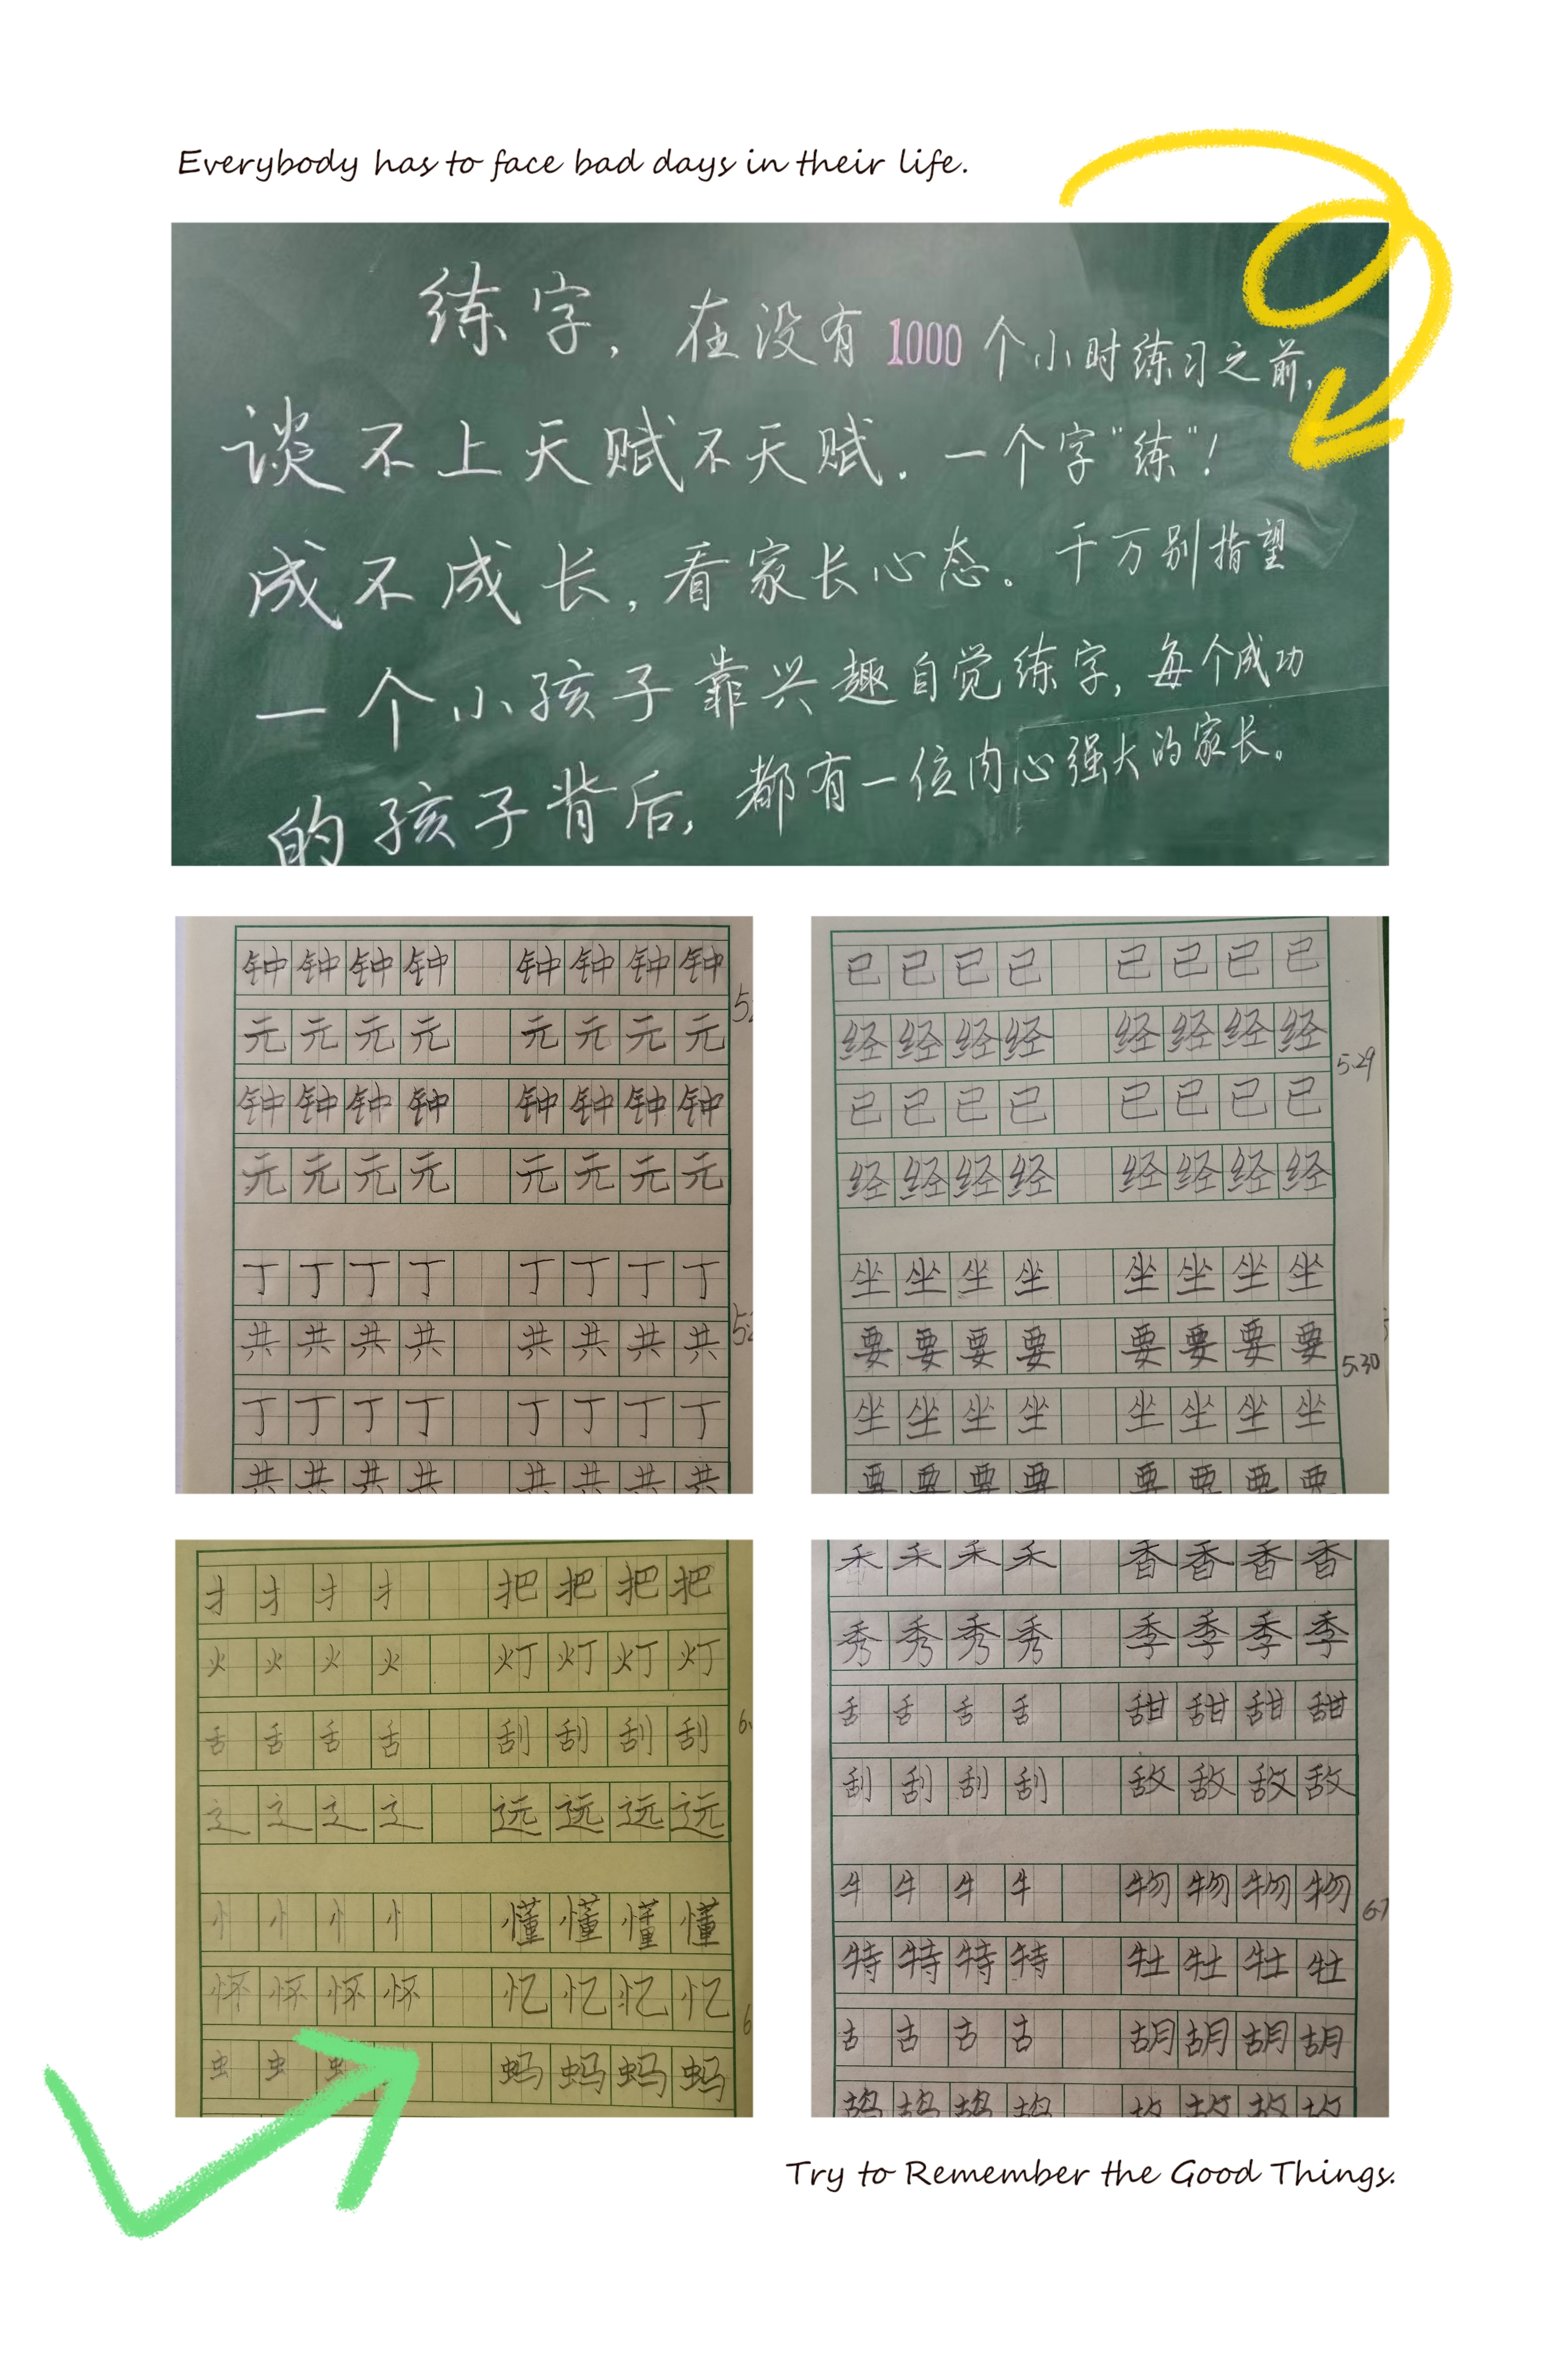 Everybody has to face bad days in their life.
练字,在没有1000个小时练习之前,
谈不上天赋不天赋.一个字"练"!
成不成长,看家长心态。千万别指望
一个小孩子靠兴趣自觉练字,每个成功
的孩子背后,都有一位内心强大的家长。
钟钟钟钟 钟钟钟钟
元元元元 元元元元
钟钟钟钟 钟钟钟钟
元元元元 元元元元
丁丁丁丁 丁丁丁丁
共共共共 共共共共
丁丁丁丁 丁丁丁丁
共共共共 共共共共
已已已已 已已已已
经经经经 经经经经
5.29
已已已已 已已已已
经经经经 经经经经
坐坐坐坐 坐坐坐坐
要要要要 要要要要
5.30
坐坐坐坐 坐坐坐坐
要要要要 要要要要
扌扌扌扌 把把把把
火火火火 灯灯灯灯
舌舌舌舌 刮刮刮刮
辶辶辶辶 远远远远
忄忄忄忄 懂懂懂懂
怀怀怀怀 忆忆忆忆
虫虫虫 蚂蚂蚂蚂
禾禾禾禾 香香香香
秀秀秀秀 季季季季
舌舌舌舌 甜甜甜甜
刮刮刮刮 敌敌敌敌
牛牛牛牛 物物物物
6.7
特特特特 牡牡牡牡
古古古古 胡胡胡胡
故故故故
Try to Remember the Good Things.